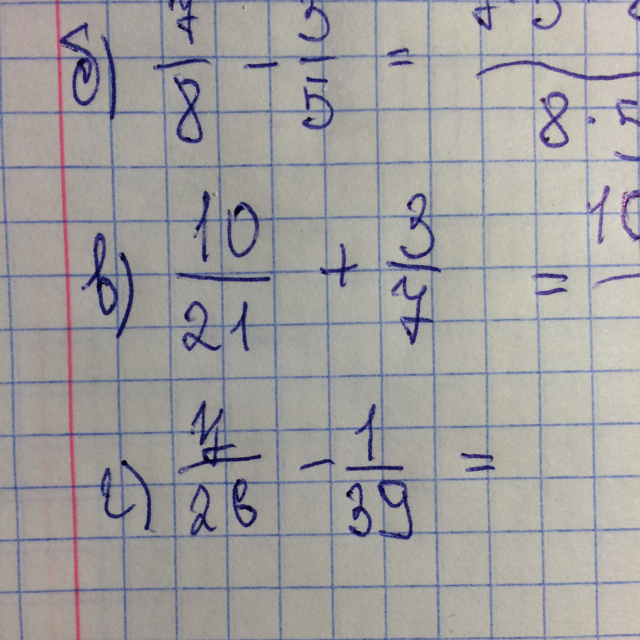 б) 7/8 - 3/5 = 7 3 / 8 · 5
в) 10/21 + 3/7 = 10
г) 7/26 - 1/39 =